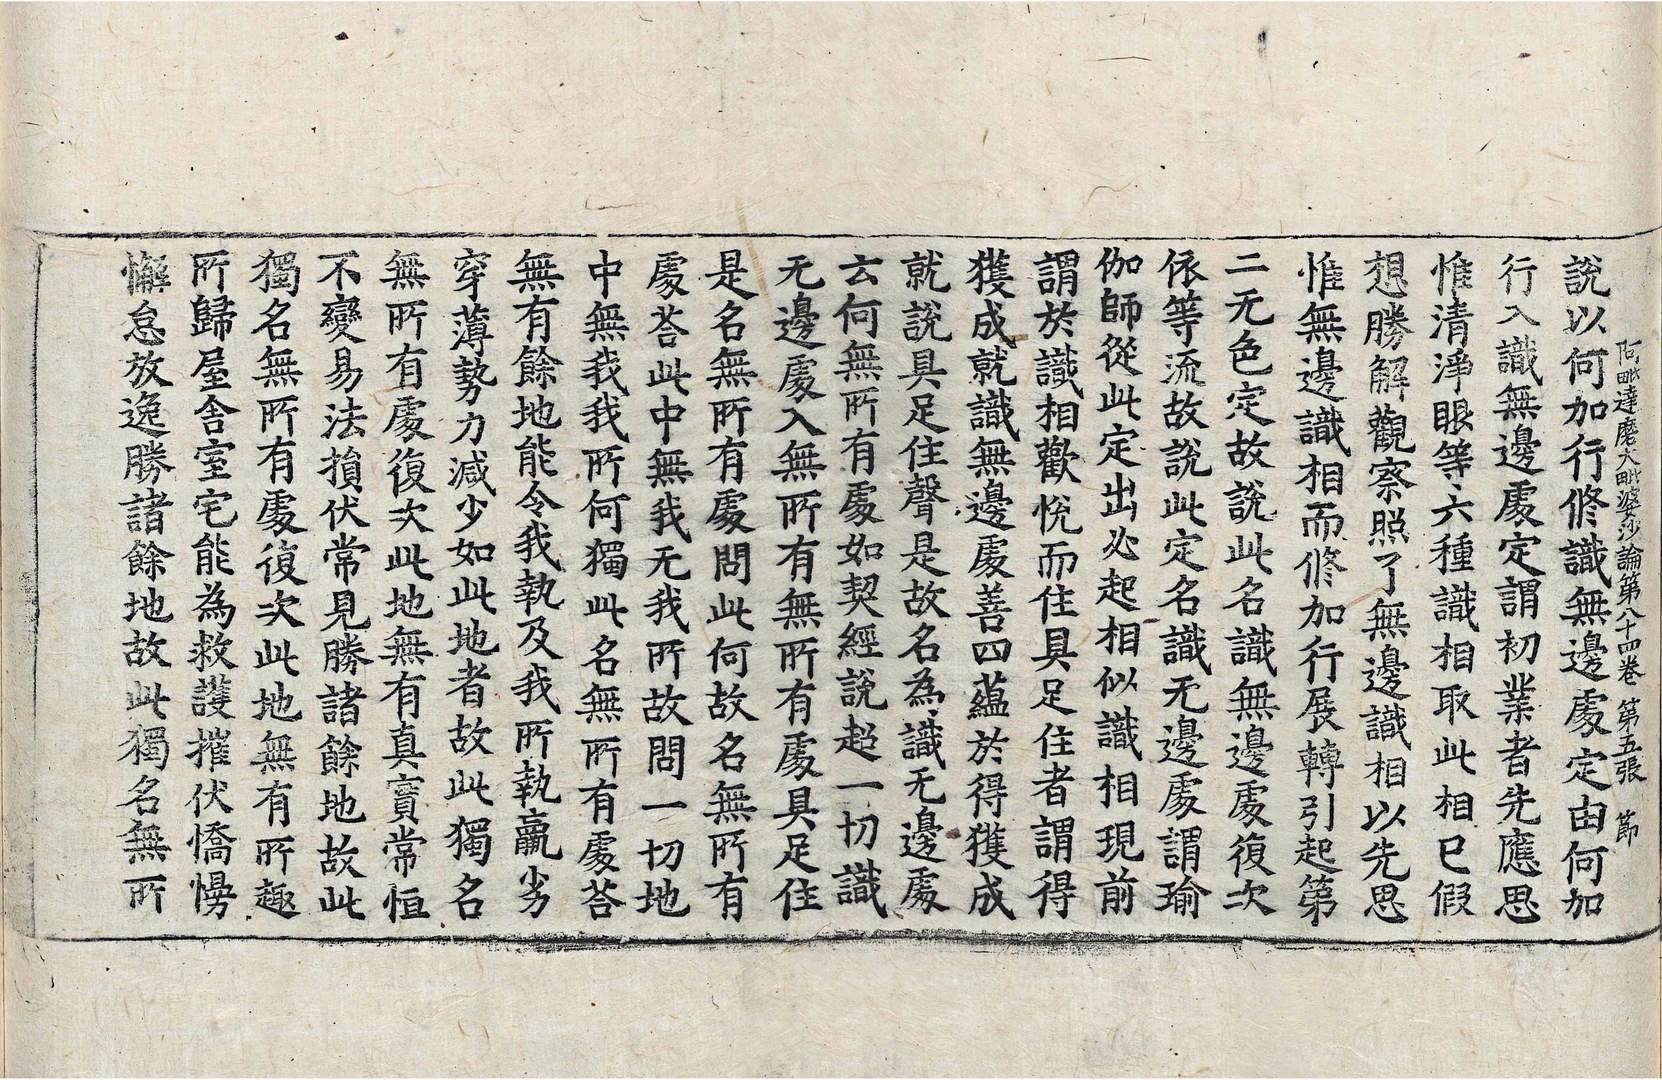 阿毗達磨大毗婆沙論第八十四卷 第五張 節
說以何加行修識無邊處定由何加
行入識無邊處定謂初業者先應思
惟清淨眼等六種識相取此相已假
想勝解觀察照了無邊識相以先思
惟無邊識相而修加行展轉引起第
二无色定故說此名識無邊處復次
依等流故說此定名識无邊處謂瑜
伽師從此定出必起相似識相現前
謂於識相歡悅而住具足住者謂得
獲成就識無邊處善四蘊於得獲成
就說具足住聲是故名為識无邊處
云何無所有處如契經說超一切識
无邊處入無所有無所有處具足住
是名無所有處問此何故名無所有
處荅此中無我无我所故問一切地
中無我我所何獨此名無所有處荅
無有餘地能令我執及我所執羸劣
穿薄勢力減少如此地者故此獨名
無所有處復次此地無有真實常恒
不變易法損伏常見勝諸餘地故此
獨名無所有處復次此地無有所趣
所歸屋舍室宅能為救護摧伏憍慢
懈怠放逸勝諸餘地故此獨名無所